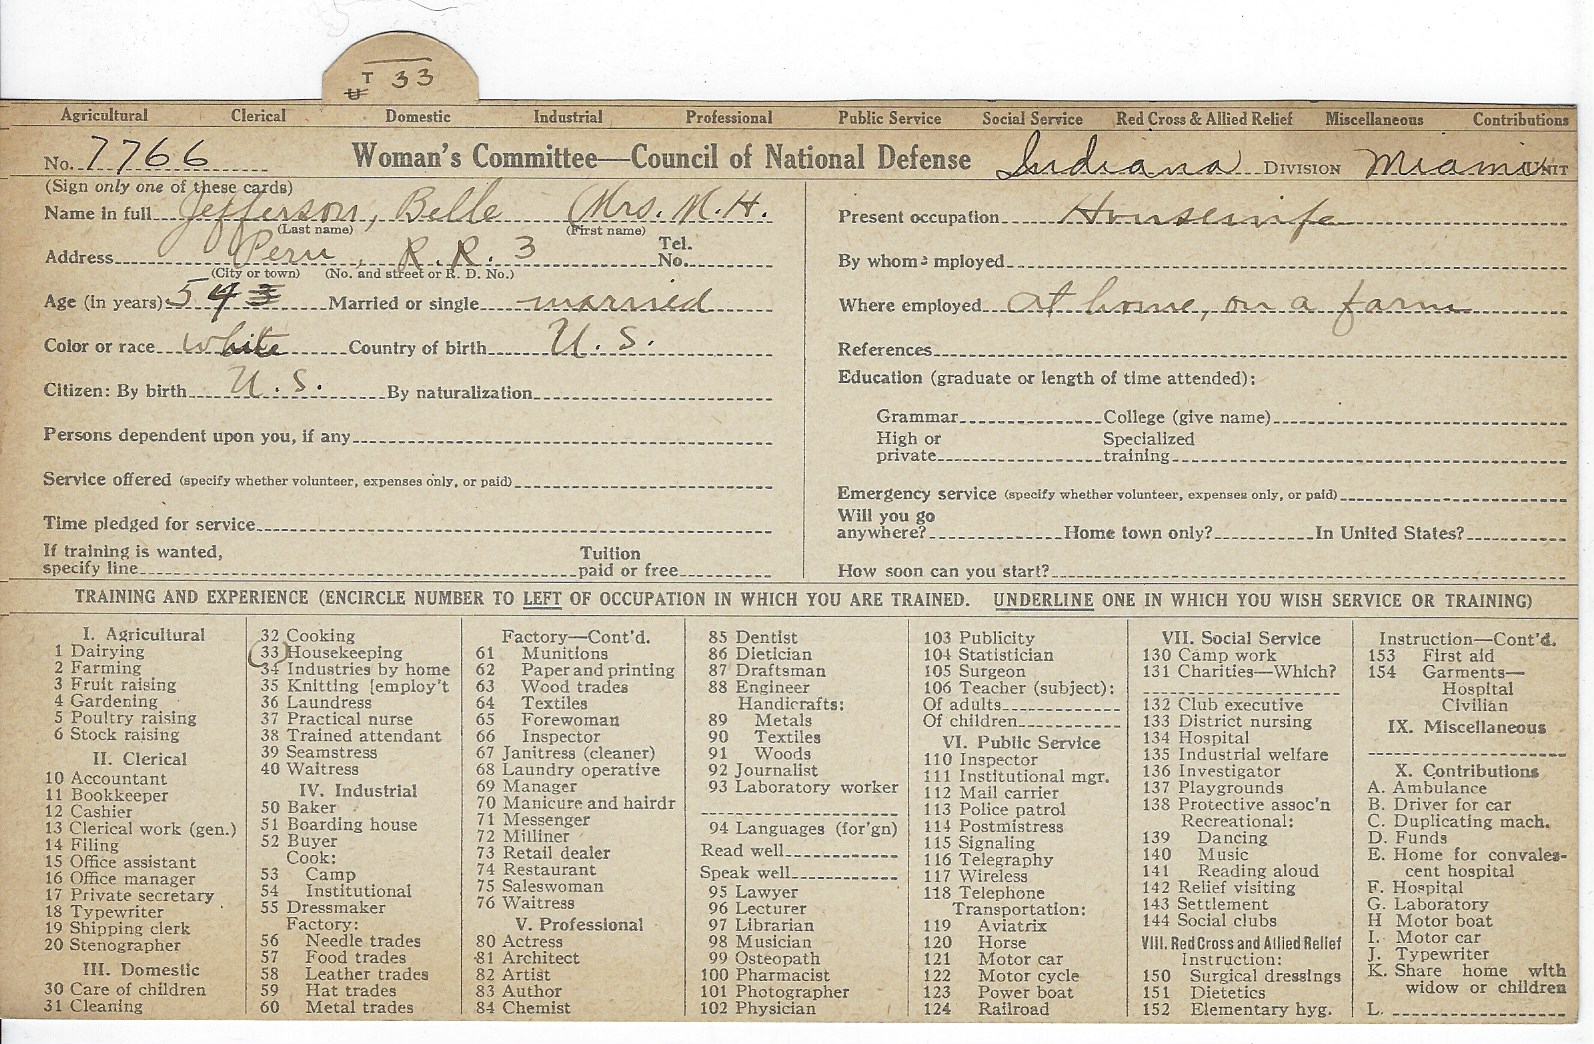 T 33
U
Agricultural Clerical Domestic Industrial Professional Public Service Social Service Red Cross & Allied Relief Miscellaneous Contributions
No. 7766 Woman's Committee—Council of National Defense Indiana DIVISION Miami UNIT
(Sign only one of these cards)
Name in full Jefferson, Belle (Mrs. M. H.
(Last name) (First name)
Address Peru, R. R. 3 Tel. No.
(City or town) (No. and street or R. D. No.)
Age (in years) 54 3 Married or single married
Color or race white Country of birth U. S.
Citizen: By birth U. S. By naturalization
Persons dependent upon you, if any
Service offered (specify whether volunteer, expenses only, or paid)
Time pledged for service
If training is wanted, specify line Tuition paid or free
Present occupation Housewife
By whom employed
Where employed at home, on a farm
References
Education (graduate or length of time attended):
Grammar College (give name)
High or private Specialized training
Emergency service (specify whether volunteer, expenses only, or paid)
Will you go anywhere? Home town only? In United States?
How soon can you start?
TRAINING AND EXPERIENCE (ENCIRCLE NUMBER TO LEFT OF OCCUPATION IN WHICH YOU ARE TRAINED. UNDERLINE ONE IN WHICH YOU WISH SERVICE OR TRAINING)
I. Agricultural
1 Dairying
2 Farming
3 Fruit raising
4 Gardening
5 Poultry raising
6 Stock raising
II. Clerical
10 Accountant
11 Bookkeeper
12 Cashier
13 Clerical work (gen.)
14 Filing
15 Office assistant
16 Office manager
17 Private secretary
18 Typewriter
19 Shipping clerk
20 Stenographer
III. Domestic
30 Care of children
31 Cleaning
32 Cooking
33 Housekeeping
34 Industries by home
35 Knitting [employ't
36 Laundress
37 Practical nurse
38 Trained attendant
39 Seamstress
40 Waitress
IV. Industrial
50 Baker
51 Boarding house
52 Buyer
Cook:
53 Camp
54 Institutional
55 Dressmaker
Factory:
56 Needle trades
57 Food trades
58 Leather trades
59 Hat trades
60 Metal trades
Factory—Cont'd.
61 Munitions
62 Paper and printing
63 Wood trades
64 Textiles
65 Forewoman
66 Inspector
67 Janitress (cleaner)
68 Laundry operative
69 Manager
70 Manicure and hairdr
71 Messenger
72 Milliner
73 Retail dealer
74 Restaurant
75 Saleswoman
76 Waitress
V. Professional
80 Actress
81 Architect
82 Artist
83 Author
84 Chemist
85 Dentist
86 Dietician
87 Draftsman
88 Engineer
Handicrafts:
89 Metals
90 Textiles
91 Woods
92 Journalist
93 Laboratory worker
94 Languages (for'gn)
Read well
Speak well
95 Lawyer
96 Lecturer
97 Librarian
98 Musician
99 Osteopath
100 Pharmacist
101 Photographer
102 Physician
103 Publicity
104 Statistician
105 Surgeon
106 Teacher (subject):
Of adults
Of children
VI. Public Service
110 Inspector
111 Institutional mgr.
112 Mail carrier
113 Police patrol
114 Postmistress
115 Signaling
116 Telegraphy
117 Wireless
118 Telephone
Transportation:
119 Aviatrix
120 Horse
121 Motor car
122 Motor cycle
123 Power boat
124 Railroad
VII. Social Service
130 Camp work
131 Charities—Which?
132 Club executive
133 District nursing
134 Hospital
135 Industrial welfare
136 Investigator
137 Playgrounds
138 Protective assoc'n
Recreational:
139 Dancing
140 Music
141 Reading aloud
142 Relief visiting
143 Settlement
144 Social clubs
VIII. Red Cross and Allied Relief
Instruction:
150 Surgical dressings
151 Dietetics
152 Elementary hyg.
Instruction—Cont'd.
153 First aid
154 Garments—
Hospital
Civilian
IX. Miscellaneous
X. Contributions
A. Ambulance
B. Driver for car
C. Duplicating mach.
D. Funds
E. Home for convales-
cent hospital
F. Hospital
G. Laboratory
H Motor boat
I. Motor car
J. Typewriter
K. Share home with
widow or children
L.